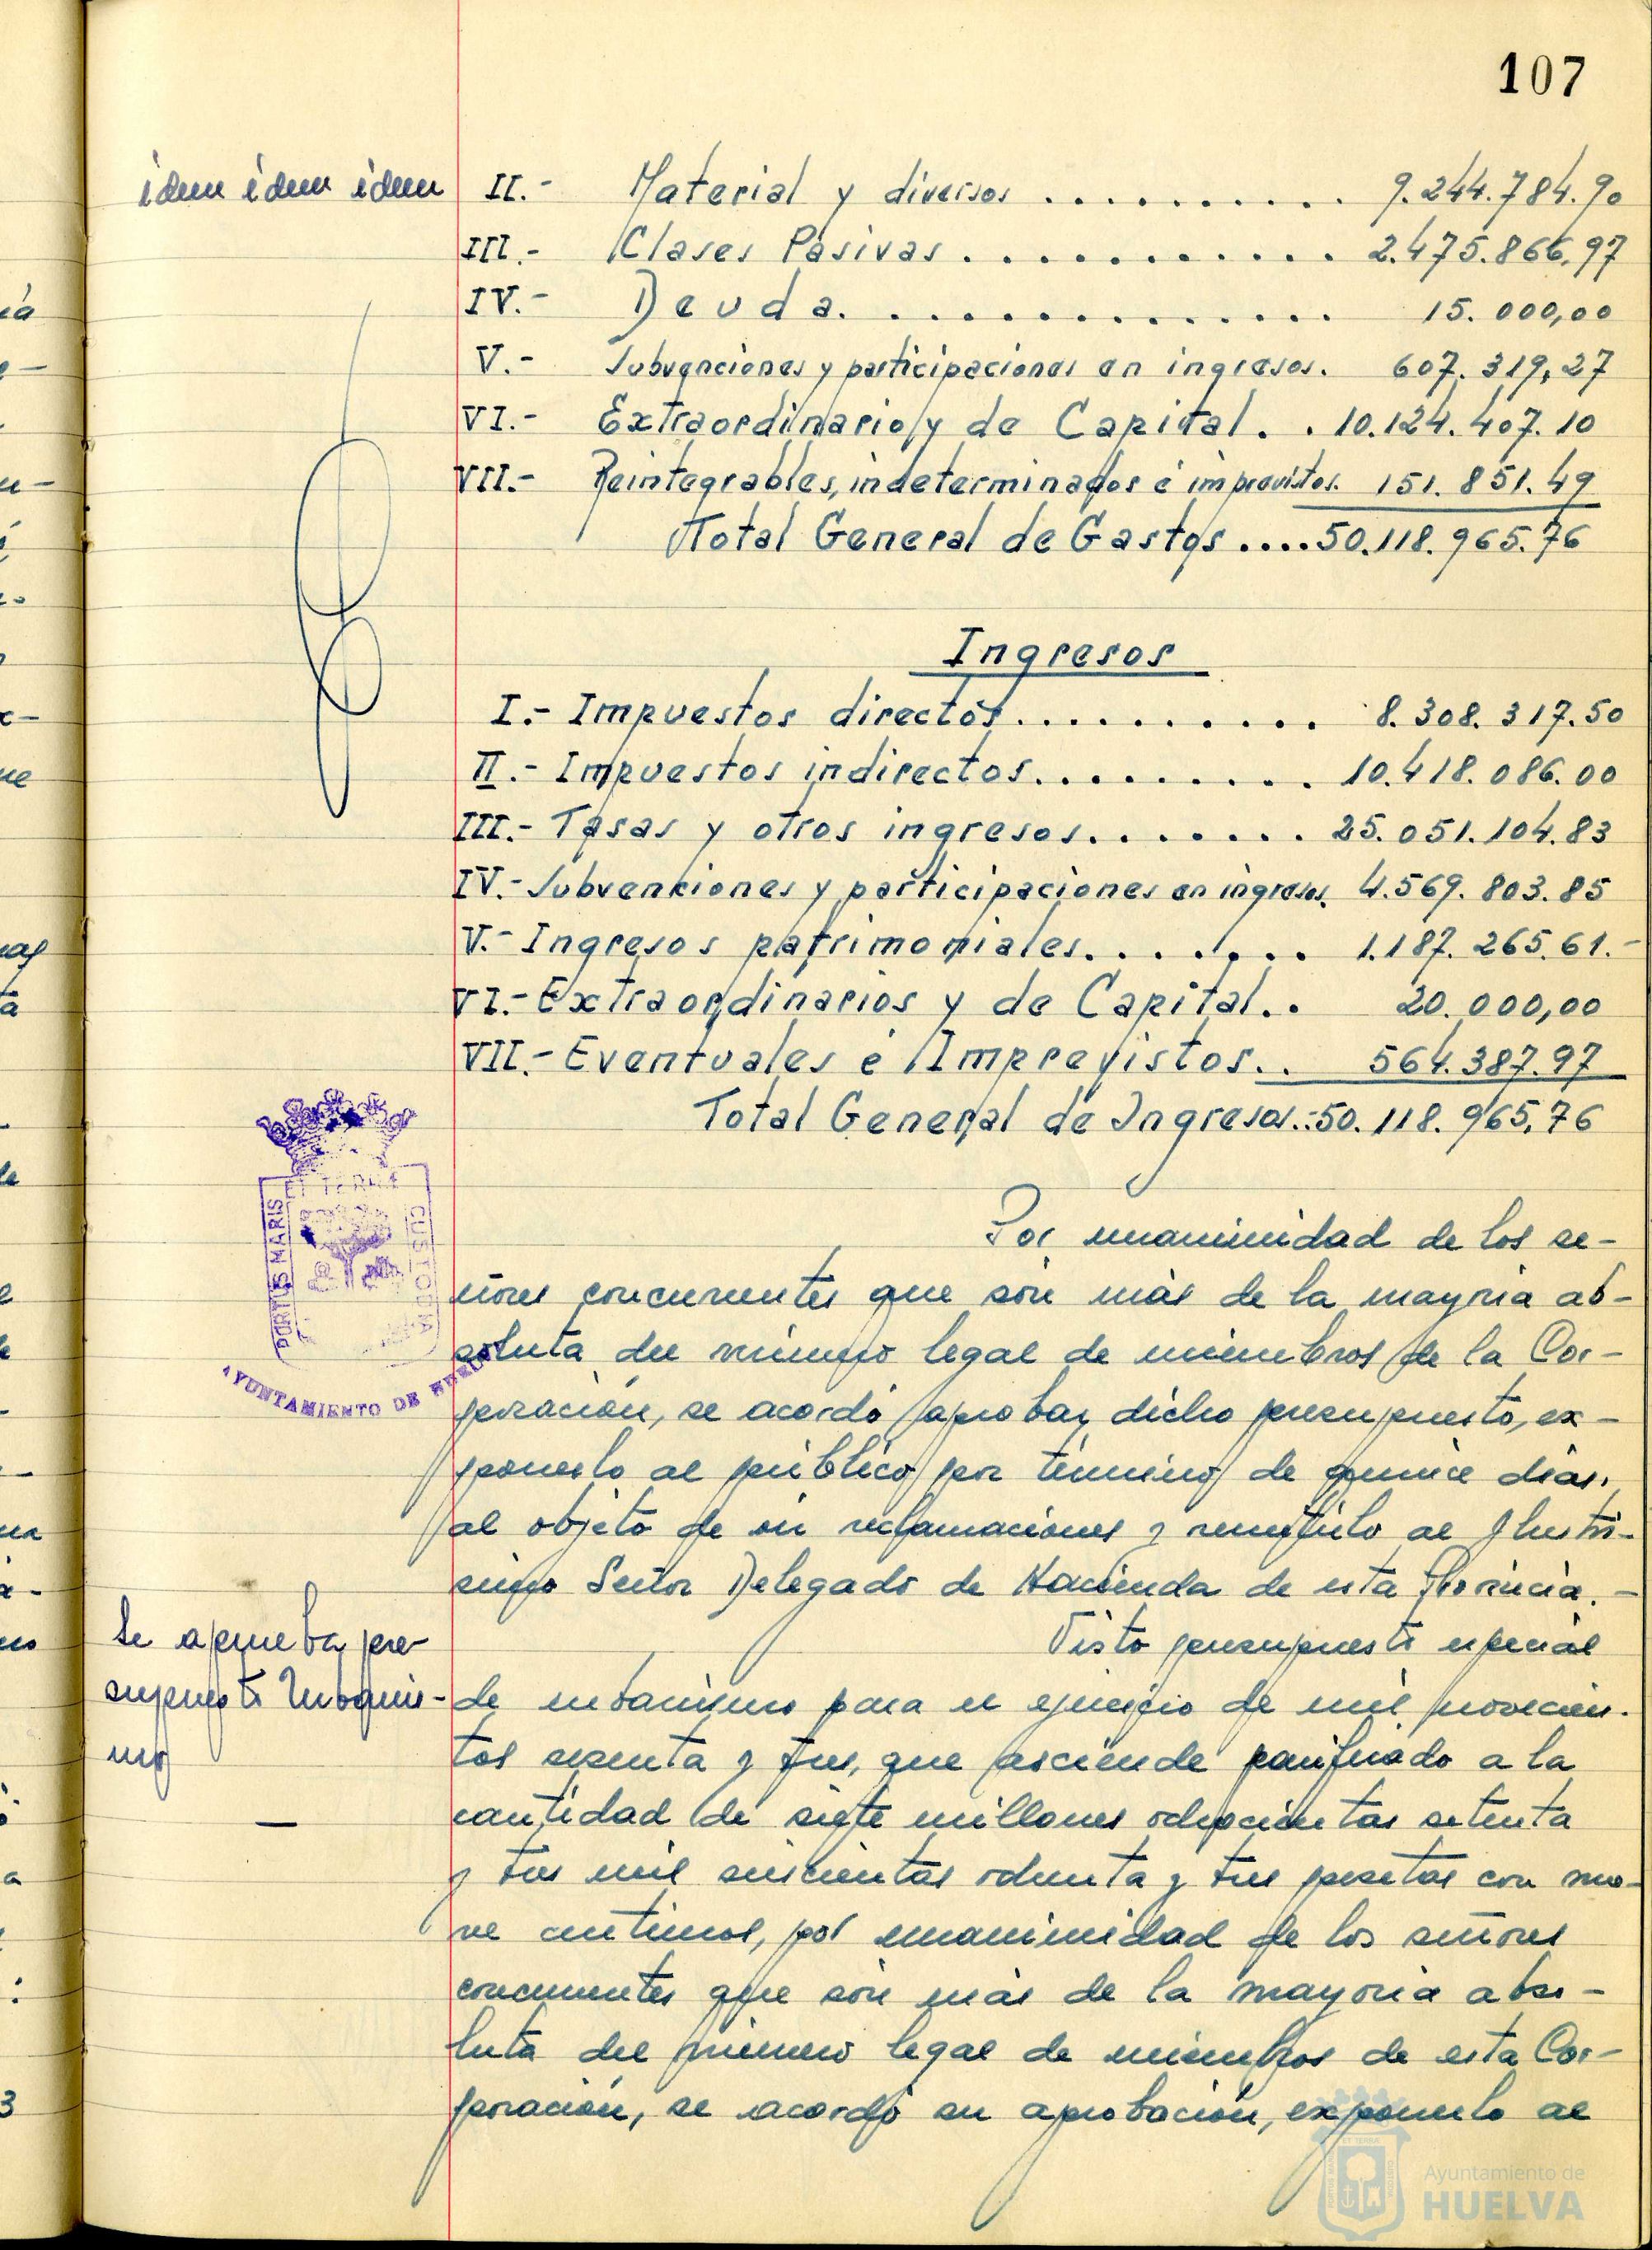 107
idem idem idem
II.- Material y diversos .......... 9.244.784.90
III.- Clases Pasivas ........... 2.475.866,97
IV.- Deuda. ............. 15.000,00
V.- Subvenciones y participaciones en ingresos. 607.319,27
VI.- Extraordinario y de Capital. . 10.124.407.10
VII.- Reintegrables, indeterminados é imprevistos. 151.851.49
Total General de Gastos ....50.118.965.76
Ingresos
I.- Impuestos directos.......... 8.308.317.50
II.- Impuestos indirectos......... 10.418.086.00
III.- Tasas y otros ingresos....... 25.051.104.83
IV.- Subvenciones y participaciones en ingresos. 4.569.803.85
V.- Ingresos patrimoniales........ 1.187.265.61.-
VI.- Extraordinarios y de Capital.. 20.000,00
VII.- Eventuales é Imprevistos.. 564.387.97
Total General de Ingresos.:50.118.965,76
PORTUS MARIS
ET TERRÆ
CUSTODIA
AYUNTAMIENTO DE HUELVA
Por unanimidad de los se-
ñores concurrentes que són más de la mayoría ab-
soluta del número legal de miembros de la Cor-
poración, se acordó aprobar dicho presupuesto, ex-
ponerlo al público por término de quince días,
al objeto de oir reclamaciones y remitirlo al Ilustrí-
simo Señor Delegado de Hacienda de esta Provincia.-
Se aprueba pre-
supuesto Urbanis-
mo
Visto presupuesto especial
de urbanismo para el ejercicio de mil novecien-
tos sesenta y tres, que asciende panificado a la
cantidad de siete millones ochocientas setenta
y tres mil seiscientas ochenta y tres pesetas con nue-
ve centimos, por unanimidad de los señores
concurrentes que són más de la mayoría abso-
luta del número legal de miembros de esta Cor-
poración, se acordó su aprobación, exponerlo al
Ayuntamiento de
HUELVA